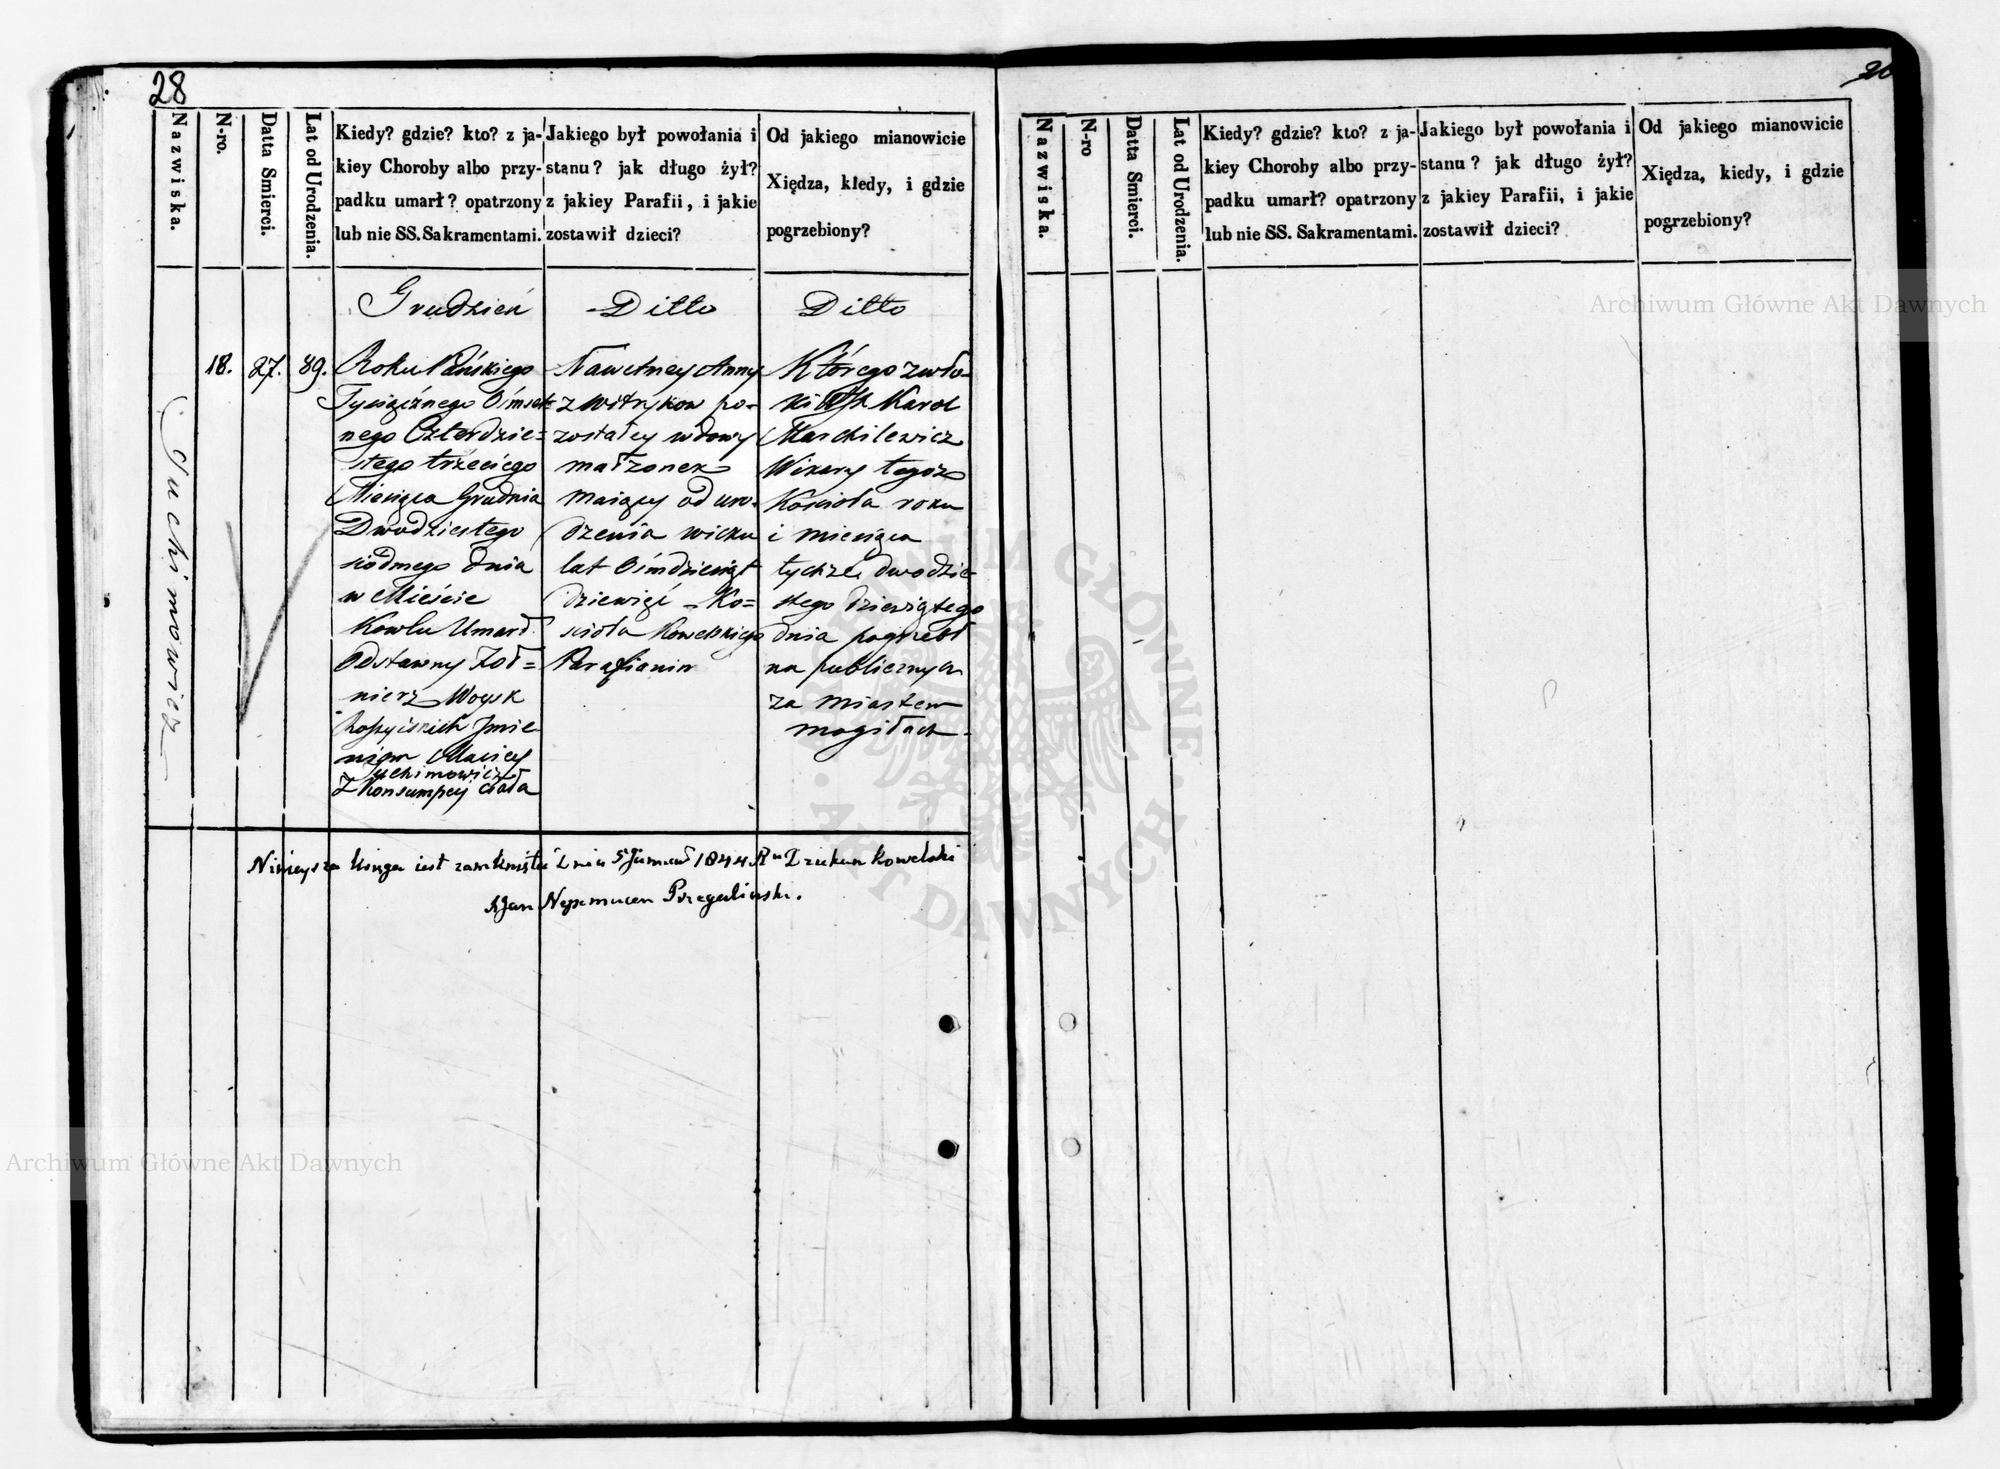 28
Nazwiska.
N-ro.
Datta Smierci.
Lat od Urodzenia.
Kiedy? gdzie? kto? z ja-
kiey Choroby albo przy-
padku umarł? opatrzony
lub nie SS. Sakramentami.
Jakiego był powołania i
stanu? jak długo żył?
z jakiey Parafii, i jakie
zostawił dzieci?
Od jakiego mianowicie
Xiędza, kiedy, i gdzie
pogrzebiony?
Juchimowicz
18.
27.
89.
Grudzień
Roku Pańskiego
Tysiącznego Ośmset-
nego Czterdzie=
stego trzeciego
Miesiąca Grudnia
Dwudziestego
siódmego dnia
w Mieście
Kowlu Umarł
Odstawny Żoł=
nierz Woysk
Rossyiskich Jmie-
niem Maciey
Juchimowicz
z Konsumpcyi ciała
Ditto
Anny
z Witrykow po-
zostałey wdowy
małżonek
maiący od uro-
dzenia wieku
lat Ośmdziesiąt
dziewięć Ko=
scioła Kowelskiego
Parafianin
Ditto
Którego zwło-
ki Karol
Marchilewicz
Wikary tegoż
Kościoła roku
i miesiąca
tychże dwudzie-
stego dziewiątego
dnia pogrzebł
na publicznych
za miastem
mogiłach.
Ninieysza księga iest zamknięta Dnia 5 1844 Ru Dziekan Kowelski
X Jan Nepomucen
Nazwiska.
N-ro
Datta Smierci.
Lat od Urodzenia.
Kiedy? gdzie? kto? z ja-
kiey Choroby albo przy-
padku umarł? opatrzony
lub nie SS. Sakramentami.
Jakiego był powołania i
stanu? jak długo żył?
z jakiey Parafii, i jakie
zostawił dzieci?
Od jakiego mianowicie
Xiędza, kiedy, i gdzie
pogrzebiony?
Archiwum Główne Akt Dawnych
Archiwum Główne Akt Dawnych
ARCHIWUM GŁÓWNE
AKT DAWNYCH